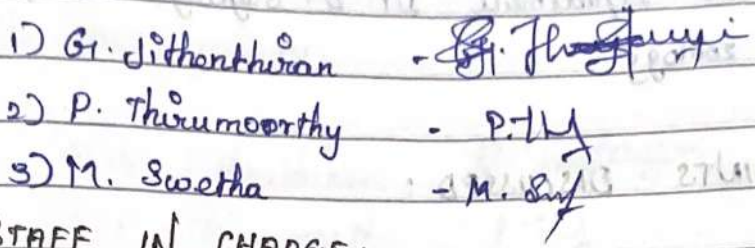 1) G. Jithenthiran -
2) P. Thirumoorthy - P.
3) M. Swetha - M.
STAFF IN CHARGE: